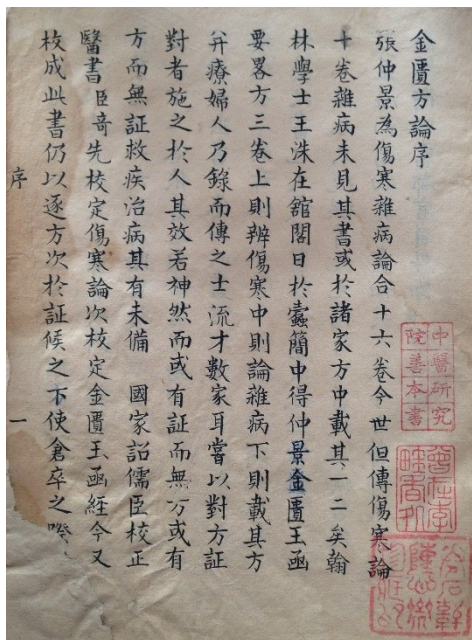 金匱方論序
張仲景為傷寒雜病論合十六卷今世但傳傷寒論
十卷雜病未見其書或於諸家方中載其一二矣翰
林學士王洙在舘閣日於蠹簡中得仲景金匱玉函
要畧方三卷上則辨傷寒中則論雜病下則載其方
并療婦人乃錄而傳之士流才數家耳嘗以對方証
對者施之於人其效若神然而或有証而無方或有
方而無証救疾治病其有未備 國家詔儒臣校正
醫書臣竒先校定傷寒論次校定金匱玉函經今又
校成此書仍以逐方次於証候之下使倉卒之際
序 一
中醫研究
院善本書